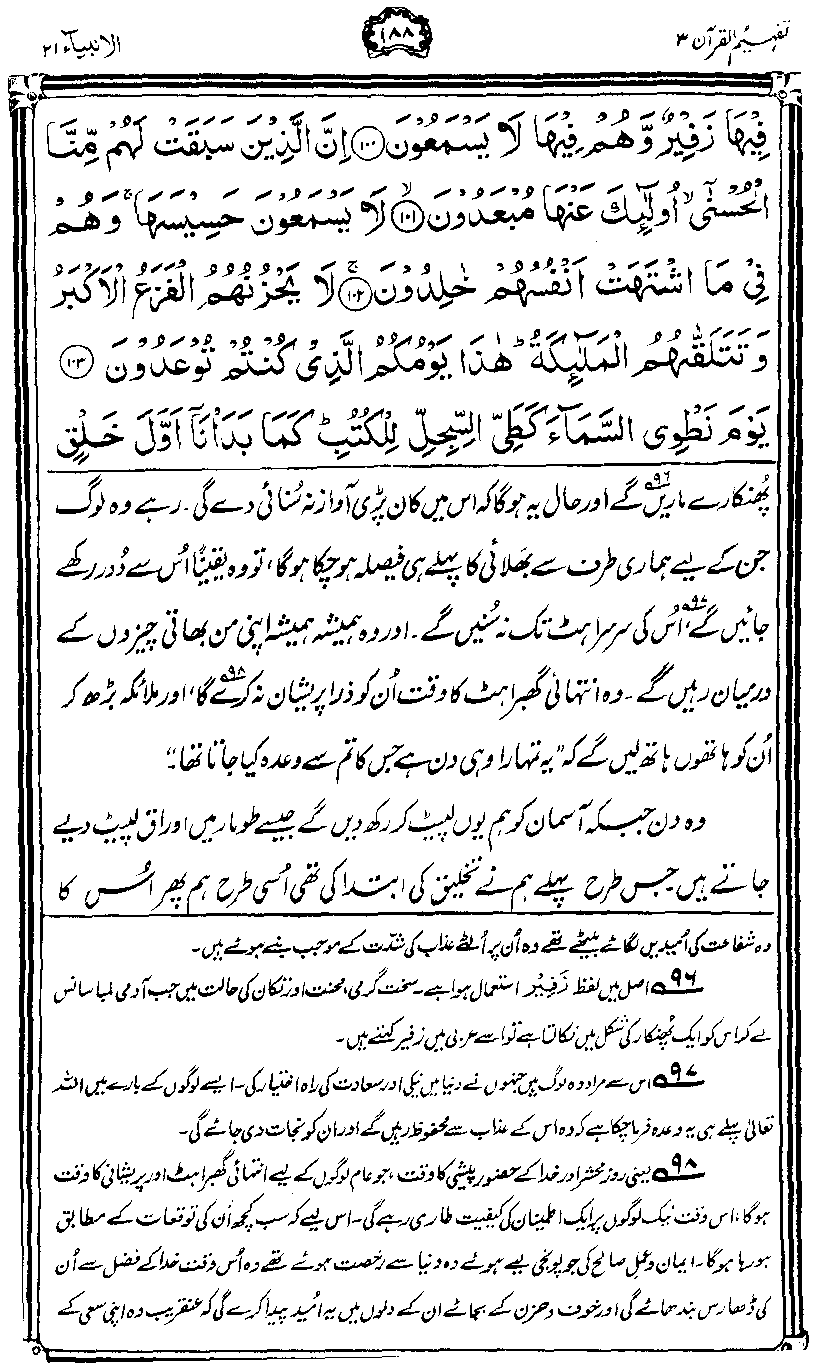 تفہیم القرآن ۳
۱۸۸
الانبیآء ۲۱
فِيْهَا زَفِيْرٌ وَّهُمْ فِيْهَا لَا يَسْمَعُوْنَ ۝۱۰۰ اِنَّ الَّذِيْنَ سَبَقَتْ لَهُمْ مِّنَّا
الْحُسْنٰٓى ۙ اُولٰٓئِكَ عَنْهَا مُبْعَدُوْنَ ۙ۝۱۰۱ لَا يَسْمَعُوْنَ حَسِيْسَهَا ۚ وَهُمْ
فِىْ مَا اشْتَهَتْ اَنْفُسُهُمْ خٰلِدُوْنَ ۚ۝۱۰۲ لَا يَحْزُنُهُمُ الْفَزَعُ الْاَكْبَرُ
وَتَتَلَقّٰىهُمُ الْمَلٰٓئِكَةُ ؕ هٰذَا يَوْمُكُمُ الَّذِىْ كُنْتُمْ تُوْعَدُوْنَ ۝۱۰۳
يَوْمَ نَطْوِى السَّمَآءَ كَطَىِّ السِّجِلِّ لِلْكُتُبِ ؕ كَمَا بَدَاْنَاۤ اَوَّلَ خَلْقٍ
پُھنکارے ماریں۹۶ گے اور حال یہ ہوگا کہ اس میں کان پڑی آواز نہ سُنائی دے گی۔ رہے وہ لوگ
جن کے لیے ہماری طرف سے بھلائی کا پہلے ہی فیصلہ ہو چکا ہوگا، تو وہ یقیناً اُس سے دُور رکھے
جائیں گے۹۷، اُس کی سرسراہٹ تک نہ سُنیں گے۔ اور وہ ہمیشہ ہمیشہ اپنی من بھاتی چیزوں کے
درمیان رہیں گے۔ وہ انتہائی گھبراہٹ کا وقت اُن کو ذرا پریشان نہ کرے گا۹۸، اور ملائکہ بڑھ کر
اُن کو ہاتھوں ہاتھ لیں گے کہ ”یہ تمہارا وہی دن ہے جس کا تم سے وعدہ کیا جاتا تھا۔“
وہ دن جبکہ آسمان کو ہم یوں لپیٹ کر رکھ دیں گے جیسے طومار میں اوراق لپیٹ دیے
جاتے ہیں۔ جس طرح پہلے ہم نے تخلیق کی ابتدا کی تھی اُسی طرح ہم پھر اُس کا
وہ شفاعت کی اُمیدیں لگائے بیٹھے تھے وہ اُن پر اُلٹے عذاب کی شدّت کے موجب بنے ہوئے ہیں۔
۹۶ اصل میں لفظ زَفِیْرُ استعمال ہوا ہے۔ سخت گرمی، محنت اور تکان کی حالت میں جب آدمی لمبا سانس
لے کر اس کو ایک پُھنکار کی شکل میں نکالتا ہے تو اسے عربی میں زفیر کہتے ہیں۔
۹۷ اس سے مراد وہ لوگ ہیں جنہوں نے دنیا میں نیکی اور سعادت کی راہ اختیار کی۔ ایسے لوگوں کے بارے میں اللہ
تعالیٰ پہلے ہی یہ وعدہ فرما چکا ہے کہ وہ اس کے عذاب سے محفوظ رہیں گے اور ان کو نجات دی جائے گی۔
۹۸ یعنی روزِ محشر اور خدا کے حضور پیشی کا وقت، جو عام لوگوں کے لیے انتہائی گھبراہٹ اور پریشانی کا وقت
ہوگا، اس وقت نیک لوگوں پر ایک اطمینان کی کیفیت طاری رہے گی۔ اس لیے کہ سب کچھ اُن کی توقعات کے مطابق
ہو رہا ہوگا۔ ایمان و عمل صالح کی جو پونجی لیے ہوئے وہ دنیا سے رخصت ہوئے تھے وہ اُس وقت خدا کے فضل سے اُن
کی ڈھارس بندھائے گی اور خوف و حزن کے بجائے ان کے دلوں میں یہ اُمید پیدا کرے گی کہ عنقریب وہ اپنی سعی کے